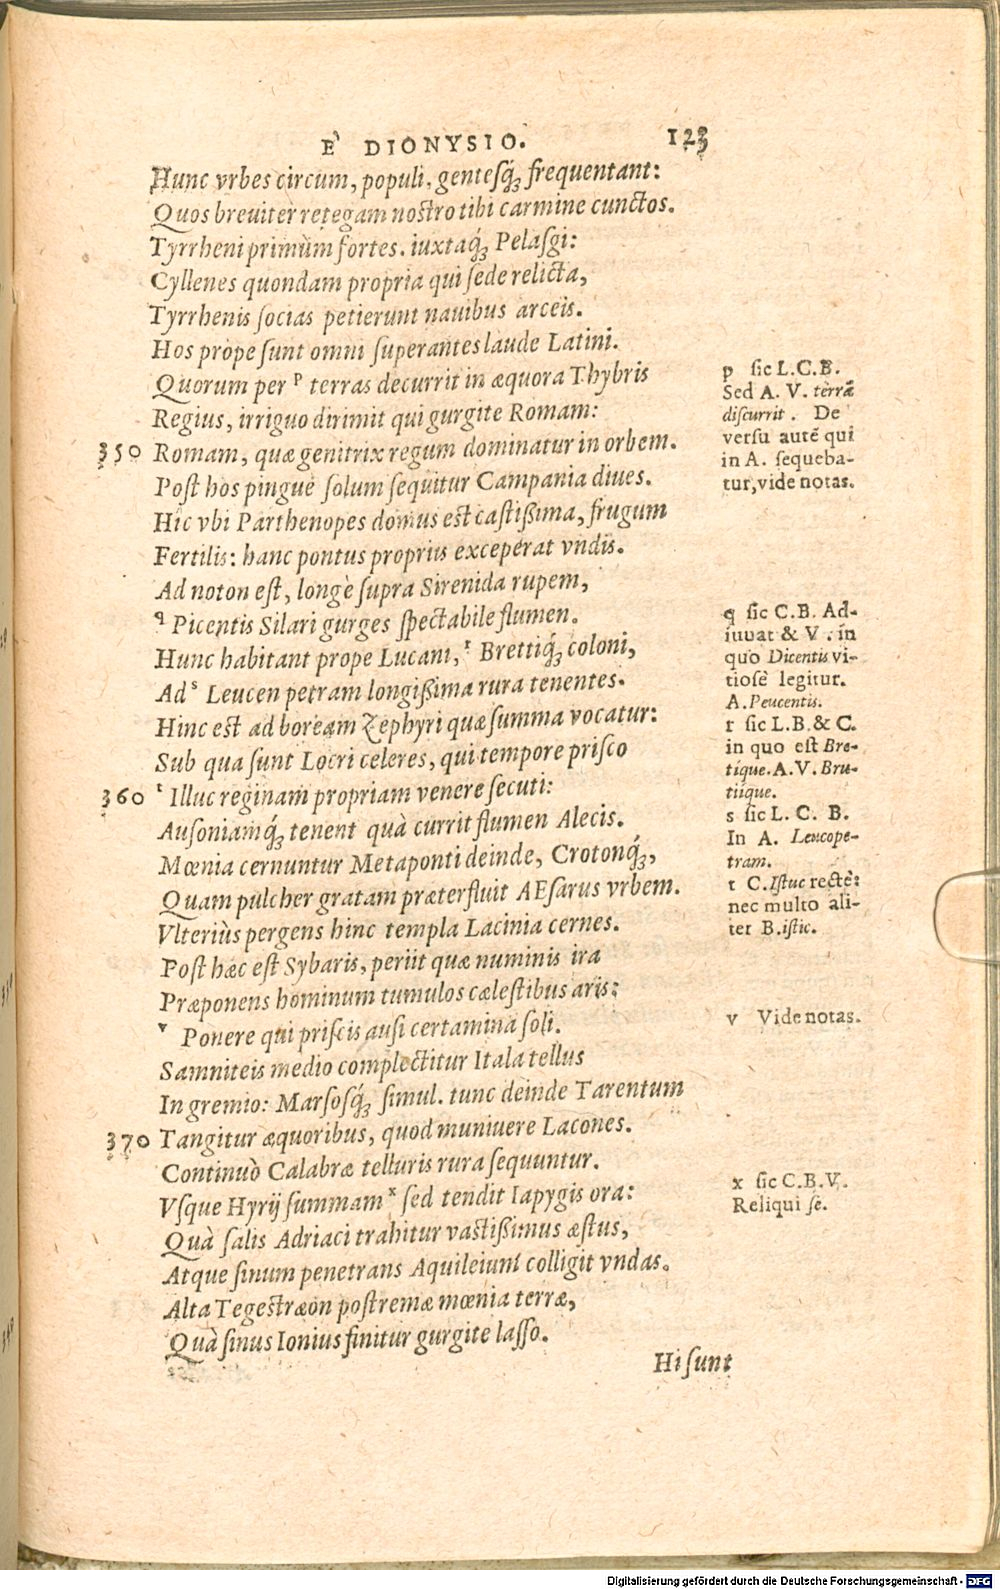 E' DIONYSIO. 123
Hunc vrbes circum, populi, gentesq́; frequentant:
Quos breuiter retegam nostro tibi carmine cunctos.
Tyrrheni primùm fortes. iuxtaq́; Pelasgi:
Cyllenes quondam propria qui sede relicta,
Tyrrhenis socias petierunt nauibus arceis.
Hos prope sunt omni superantes laude Latini.
Quorum per p terras decurrit in æquora Thybris
Regius, irriguo dirimit qui gurgite Romam:
350 Romam, quæ genitrix regum dominatur in orbem.
Post hos pingue solum sequitur Campania diues.
Hic vbi Parthenopes domus est castißima, frugum
Fertilis: hanc pontus propriis exceperat vndis.
Ad noton est, longè supra Sirenida rupem,
q Picentis Silari gurges spectabile flumen.
Hunc habitant prope Lucani, r Brettiq́; coloni,
Ad s Leucen petram longißima rura tenentes.
Hinc est ad boream Zephyri quæ summa vocatur:
Sub qua sunt Locri celeres, qui tempore prisco
360 t Illuc reginam propriam venere secuti:
Ausoniamq́; tenent quà currit flumen Alecis.
Mœnia cernuntur Metaponti deinde, Crotonq́;,
Quam pulcher gratam præterfluit AEsarus vrbem.
Vlteriùs pergens hinc templa Lacinia cernes.
Post hæc est Sybaris, periit quæ numinis ira
Præponens hominum tumulos cælestibus aris:
v Ponere qui priscis ausi certamina soli.
Samniteis medio complectitur Itala tellus
In gremio: Marsosq́; simul. tunc deinde Tarentum
370 Tangitur æquoribus, quod muniuere Lacones.
Continuò Calabræ telluris rura sequuntur.
Vsque Hyrij summam x sed tendit Iapygis ora:
Quà salis Adriaci trahitur vastißimus æstus,
Atque sinum penetrans Aquileiuni colligit vndas.
Alta Tegestræon postremæ mœnia terræ,
Quà sinus Ionius finitur gurgite lasso.
Hi sunt
p sic L.C.B.
Sed A. V. terrã
discurrit. De
versu autē qui
in A. sequeba-
tur, vide notas.
q sic C.B. Ad-
iuuat & V. in
quo Dicentis vi-
tiosè legitur.
A. Peucentis.
r sic L.B. & C.
in quo est Bre-
tique. A.V. Bru-
tiique.
s sic L. C. B.
In A. Leucope-
tram.
t C. Istuc rectè:
nec multo ali-
ter B. istic.
v Vide notas.
x sic C.B.V.
Reliqui se.
Digitalisierung gefördert durch die Deutsche Forschungsgemeinschaft - DFG